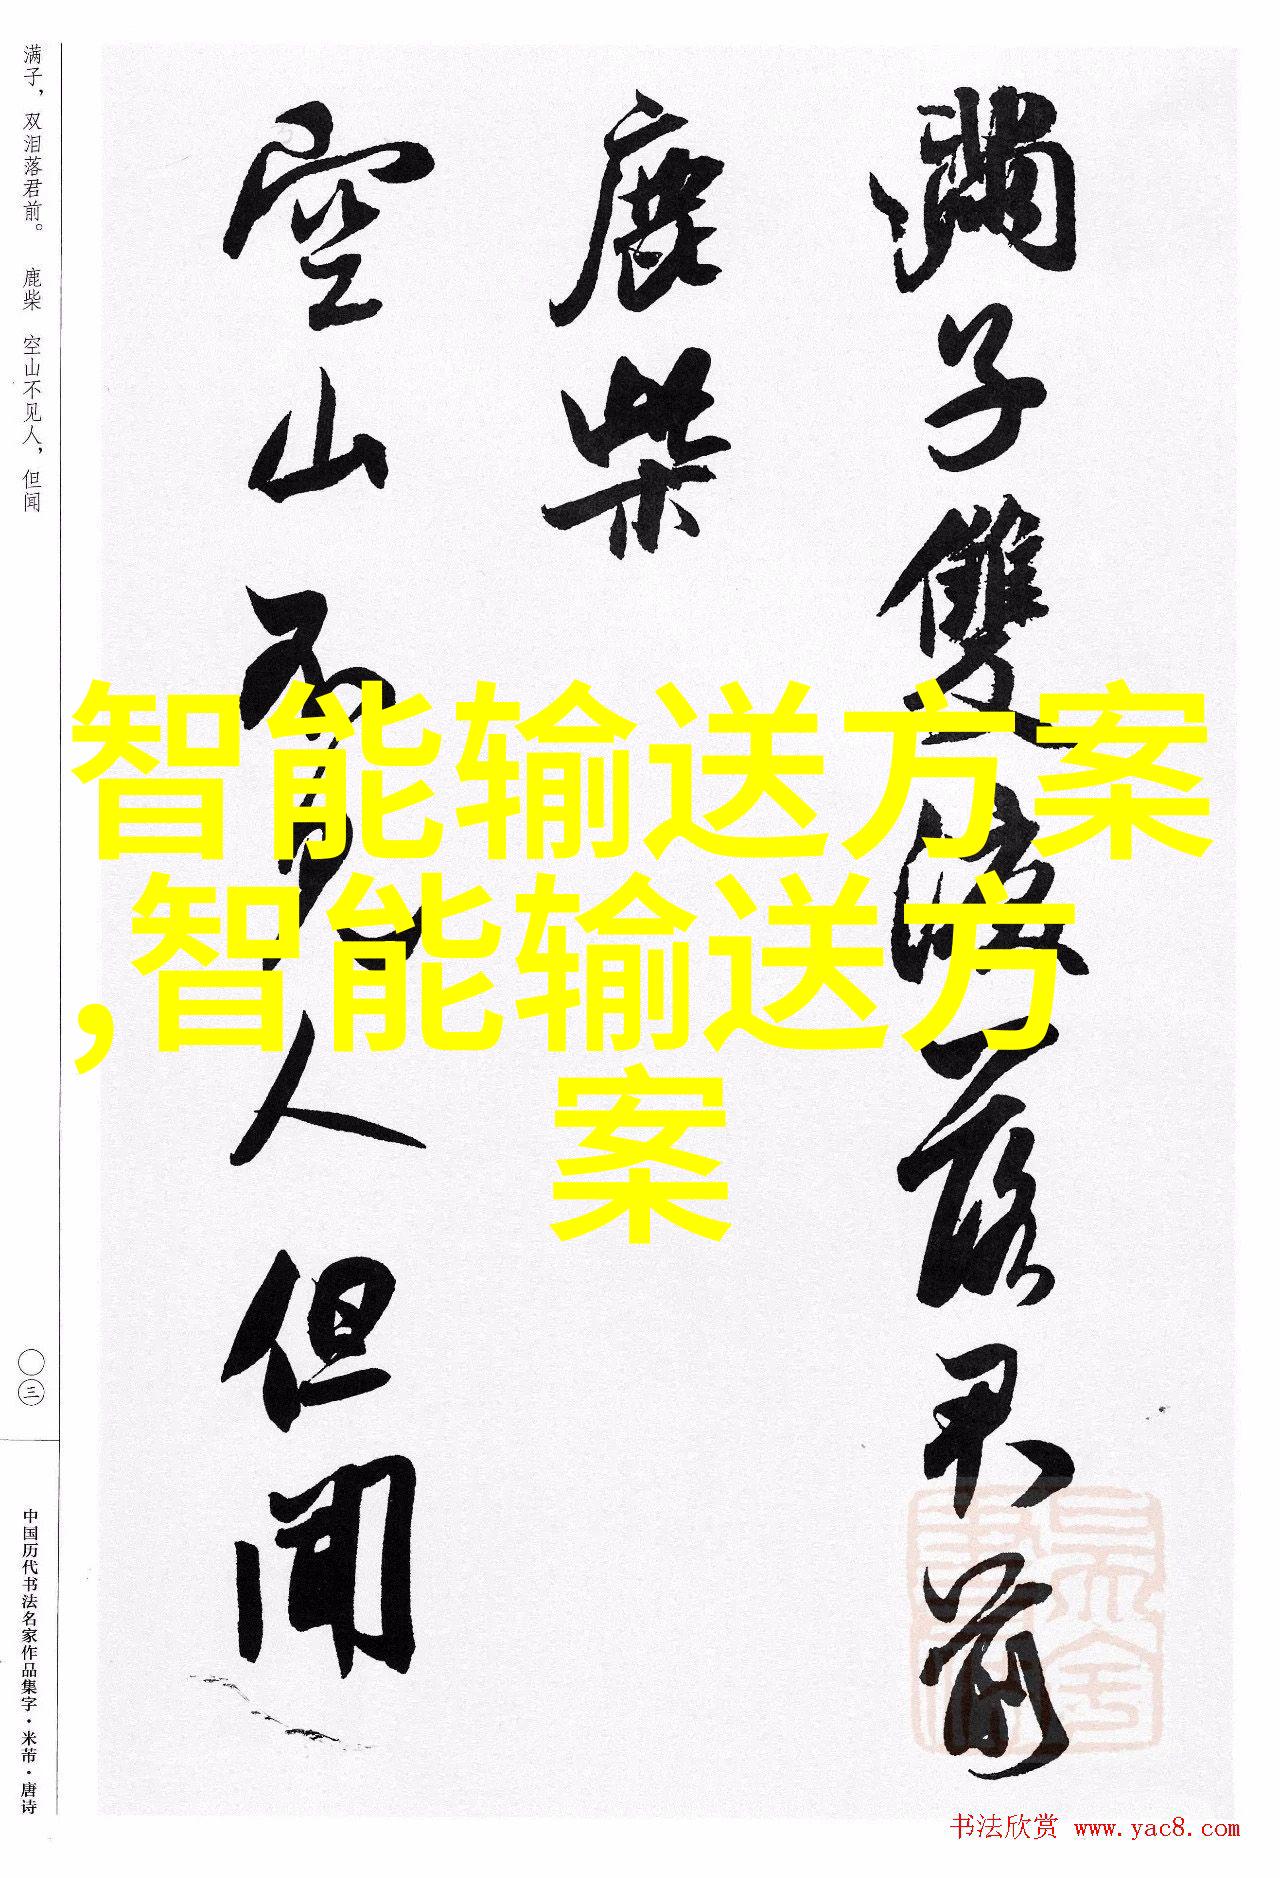 满子，双泪落君前。 鹿柴 空山不见人，但闻
满子雙淚落君前
鹿柴
空山不見人但聞
智能输送方案
,智能输送方
案
〇三
中国历代书法名家作品集字·米芾·唐诗
书法欣赏 www.yac8.com